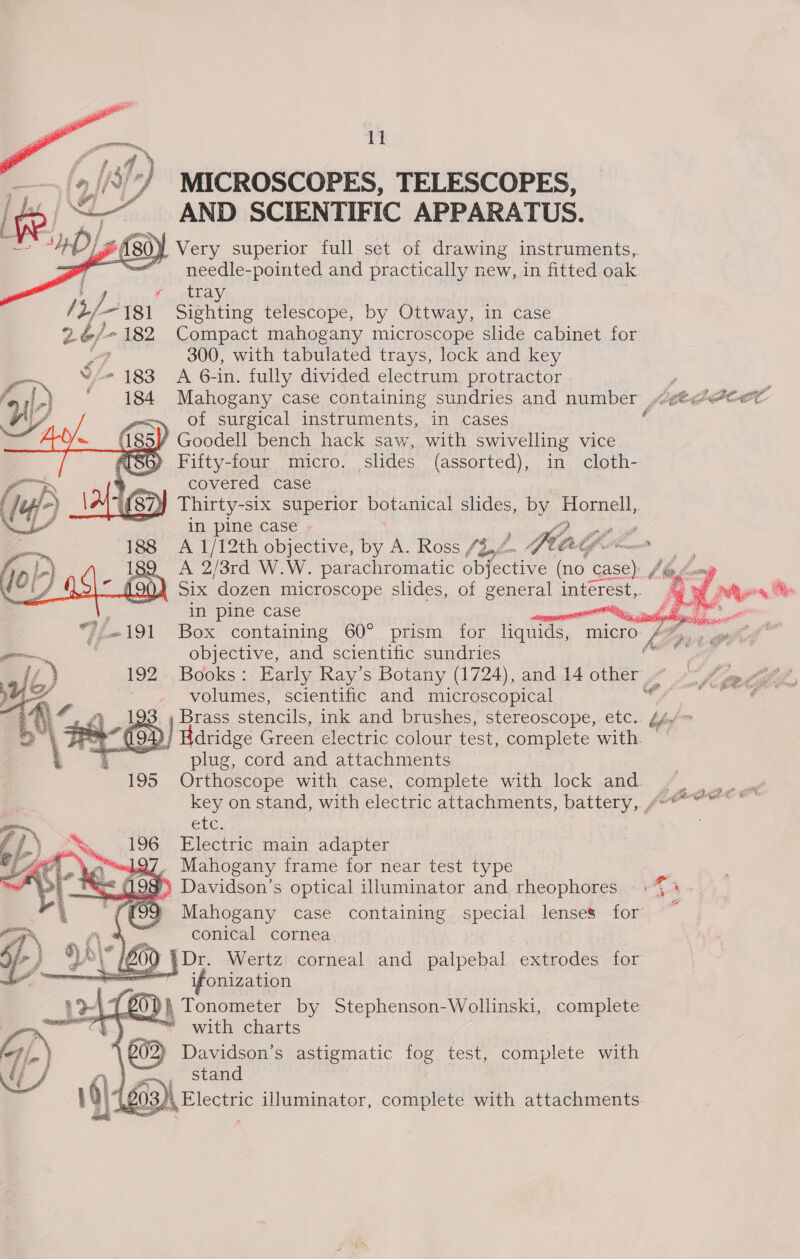 11
MICROSCOPES, TELESCOPES,
AND SCIENTIFIC APPARATUS.
180 Very superior full set of drawing instruments,
needle-pointed and practically new, in fitted oak
tray
12/- 181 Sighting telescope, by Ottway, in case
26/- 182 Compact mahogany microscope slide cabinet for
300, with tabulated trays, lock and key
183 A 6-in. fully divided electrum protractor
184 Mahogany case containing sundries and number
of surgical instruments, in cases
40/- 185 Goodell bench hack saw, with swivelling vice
186 Fifty-four micro. slides (assorted), in cloth-
covered case
187 Thirty-six superior botanical slides, by Hornell,
in pine case
188 A 1/12th objective, by A. Ross
189 A 2/3rd W.W. parachromatic objective (no case)
190 Six dozen microscope slides, of general interest,
in pine case
7/- 191 Box containing 60° prism for liquids, micro
objective, and scientific sundries
192 Books: Early Ray's Botany (1724), and 14 other
volumes, scientific and microscopical
193 Brass stencils, ink and brushes, stereoscope, etc.
194 Edridge Green electric colour test, complete with
plug, cord and attachments
195 Orthoscope with case, complete with lock and
key on stand, with electric attachments, battery,
etc.
196 Electric main adapter
197 Mahogany frame for near test type
198 Davidson's optical illuminator and rheophores
199 Mahogany case containing special lenses for
conical cornea
200 Dr. Wertz corneal and palpebal extrodes for
ifonization
201 Tonometer by Stephenson-Wollinski, complete
with charts
202 Davidson's astigmatic fog test, complete with
stand
203 Electric illuminator, complete with attachments